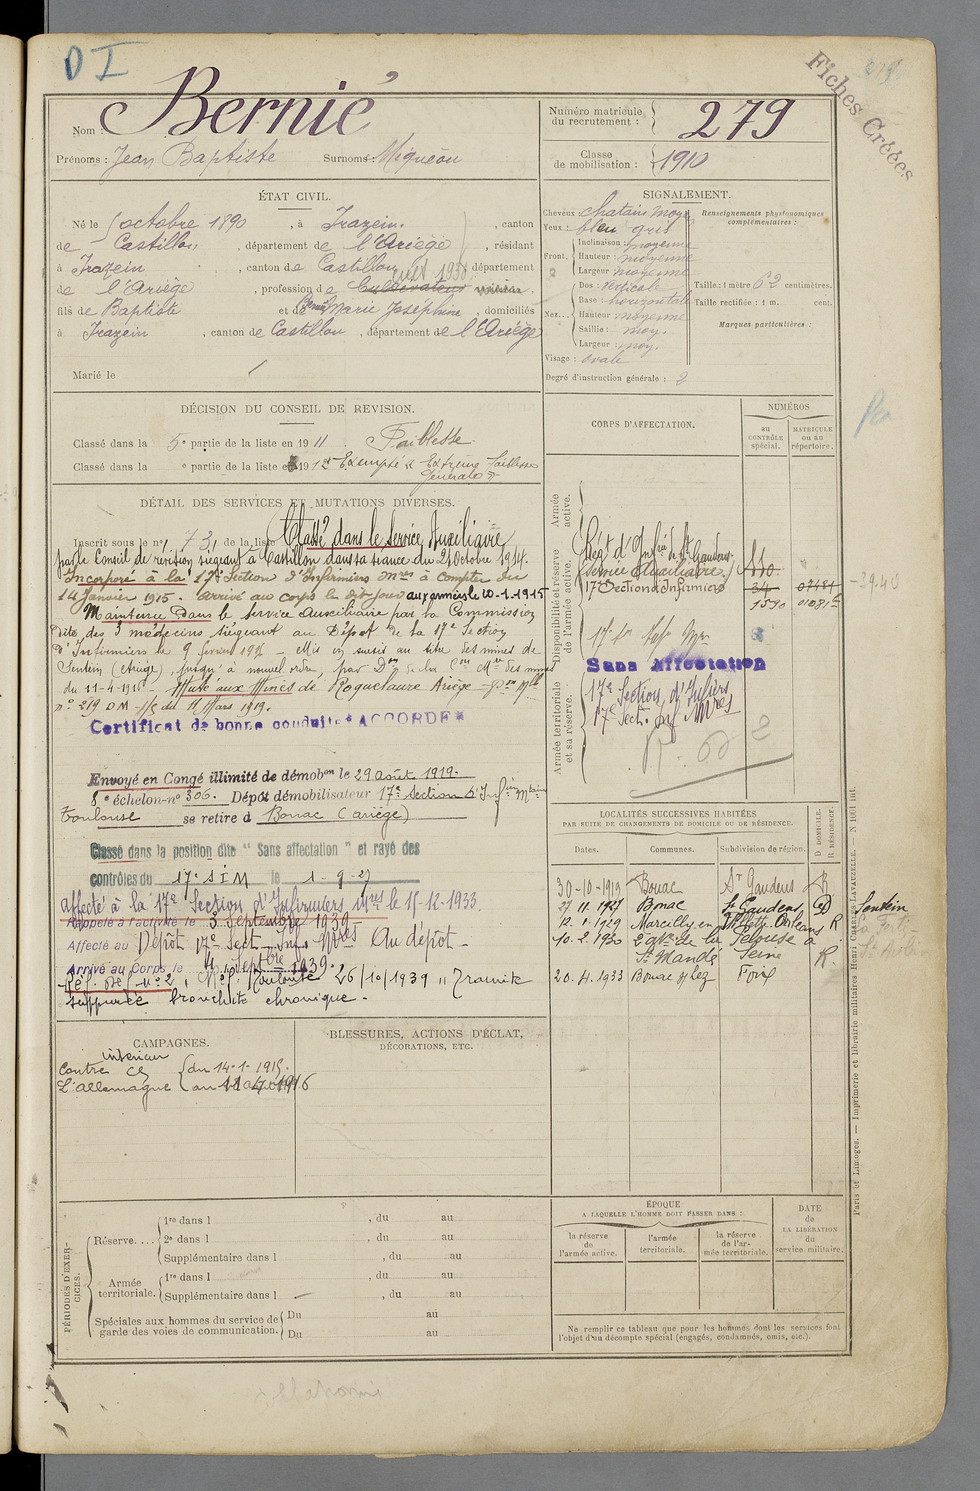 D I
Fiches Créées
Nom : Bernié
Prénoms : Jean Baptiste Surnoms : Miquéou
Numéro matricule du recrutement : 279
Classe de mobilisation : 1910
ÉTAT CIVIL.
Né le octobre 1890, à Irazein, canton
de Castillon, département de l'Ariège, résidant
à Irazein, canton de Castillon, département
de l'Ariège, profession de Cultivateur
fils de Baptiste et de Marie Joséphine, domiciliés
à Irazein, canton de Castillon, département de l'Ariège
Marié le
SIGNALEMENT.
Cheveux chatain moy.
Yeux : bleu gris
Front, Inclinaison : moyenne
Hauteur : moyenne
Largeur moyenne
Nez... Dos : verticale
Base : horizontale
Hauteur moyenne
Saillie : moy.
Largeur : moy.
Visage : ovale
Degré d'instruction générale : 2
Renseignements physionomiques complémentaires :
Taille : 1 mètre 62 centimètres.
Taille rectifiée : 1 m. cent.
Marques particulières :
DÉCISION DU CONSEIL DE REVISION.
Classé dans la 5e partie de la liste en 1911. Faiblesse
Classé dans la e partie de la liste en 1912 Exempté Extrême faiblesse
générale
DÉTAIL DES SERVICES ET MUTATIONS DIVERSES.
Inscrit sous le no 73 de la liste Classé dans le Service Auxiliaire
par le Conseil de révision siégeant à Castillon dans sa séance du 21 octobre 1914.
Incorporé à la 17e Section d'Infirmiers Mres à compter du
14 janvier 1915. Arrivé au corps le dit jour aux armées le 20-1-1915
Maintenu dans le service auxiliaire par la Commission
dite des 3 médecins siégeant au Dépôt de la 17e Section
d'Infirmiers le 9 février 1916 - Mis en sursis au titre des mines de
Sentein (Ariège) jusqu'à nouvel ordre, par Don des mines
du 11-4-1916 - Muté aux Mines de Roquelaure Ariège
no 219 DM du 11 Mars 1919.
Certificat de bonne conduite "ACCORDÉ"
Envoyé en Congé illimité de démobon le 29 août 1919.
8e échelon - no 306. Dépôt démobilisateur 17e Section d'Infiers Mtaires
Toulouse se retire à Bonac (Ariège)
Classé dans la position dite "Sans affectation" et rayé des
contrôles du 17e S I M le 1-9-27
affecté à la 17e Section d'Infirmiers Mres le 15-12-1933
Rappelé à l'activité le 3 Septembre 1939
Affecté au Dépôt 17e Sect Inf. Mres Au dépôt -
Arrivé au Corps le 4 Septbre 1939
Réf. Déf. no 2, Toulouse 26/10/1939
suppurée bronchite chronique -
CORPS D'AFFECTATION.
NUMÉROS
au CONTRÔLE spécial.
MATRICULE ou au répertoire.
Armée active.
Disponibilité et réserve de l'armée active.
Armée territoriale et sa réserve.
Régt d'Infrie de St Gaudens
(Service Auxiliaire)
17 Section d'Infirmiers
1590
Sans Affectation
17e Section d'Infiers
17e Secton Inf Mres
LOCALITÉS SUCCESSIVES HABITÉES
PAR SUITE DE CHANGEMENTS DE DOMICILE OU DE RÉSIDENCE.
Dates. Communes. Subdivision de région. D DOMICILE. R RÉSIDENCE.
30-10-1919 Bonac St Gaudens R
27 11 1927 Bonac St Gaudens D Sentein
12. 1. 1929 Marcilly en Villette Orléans R
10. 2. 1930
St Mandé Seine R.
20. 4. 1933 Bonac Foix
CAMPAGNES.
intérieur
Contre du 14-1-1915
L'Allemagne au 11 avril 1916
BLESSURES, ACTIONS D'ÉCLAT,
DÉCORATIONS, ETC.
PÉRIODES D'EXERCICES.
Réserve.... 1re dans l , du au
2e dans l , du au
Supplémentaire dans l , du au
Armée territoriale. 1re dans l , du au
Supplémentaire dans l , du au
Spéciales aux hommes du service de garde des voies de communication. Du au
Du au
ÉPOQUE
A LAQUELLE L'HOMME DOIT PASSER DANS :
la réserve de l'armée active.
l'armée territoriale.
la réserve de l'armée territoriale.
DATE de LA LIBÉRATION du service militaire.
Ne remplir ce tableau que pour les hommes dont les services font
l'objet d'un décompte spécial (engagés, condamnés, omis, etc.).
Paris et Limoges. — Imprimerie et librairie militaires Henri CHARLES-LAVAUZELLE. — N 1001 int.